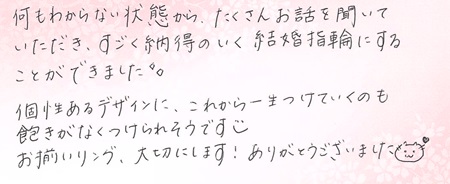 何もわからない状態から、たくさんお話を聞いて
いただき、すごく納得のいく結婚指輪にする
ことができました。
個性あるデザインに、これから一生つけていくのも
飽きがなくつけられそうです
お揃いリング、大切にします！ありがとうございました